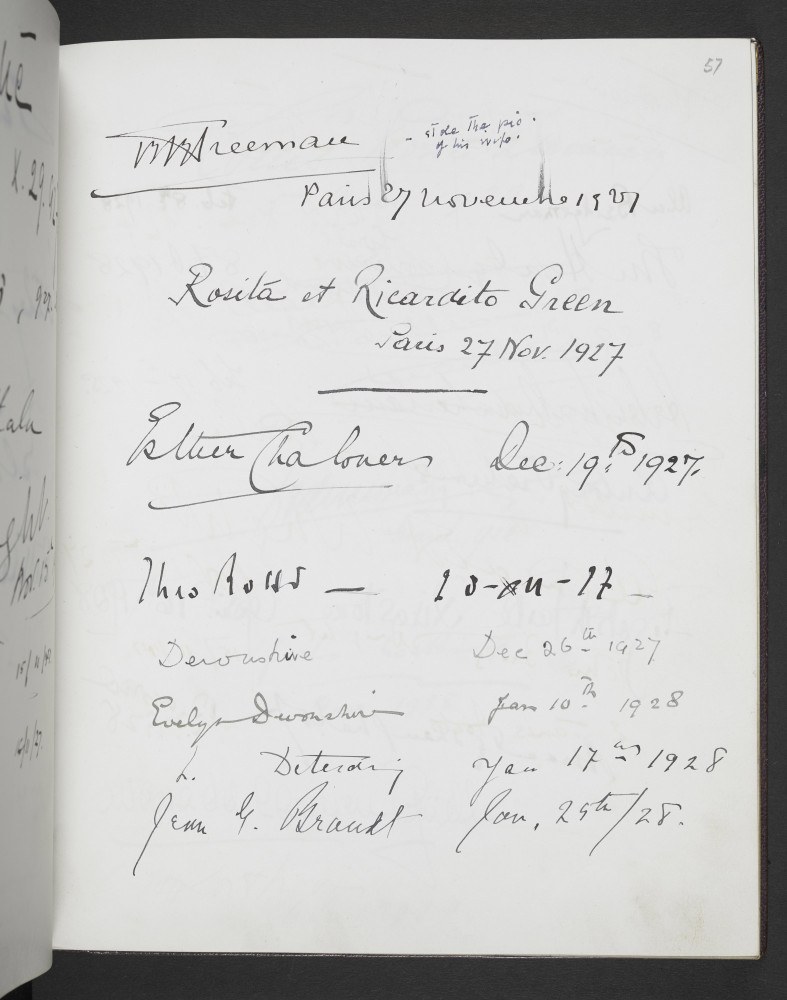 57
Freeman - stole the pic.
of his wife.
Paris 27 novembre 1927
Rosita et Ricardito Green
Paris 27 Nov. 1927
Esther Chaloner Dec: 19.th 1927.
Theo Rossi —
Devonshire Dec 26th 1927
Evelyn Devonshire Jan 10th 1928
L. Deterding Jan 17th 1928
Jean G. Brandt Jan. 29th/28.